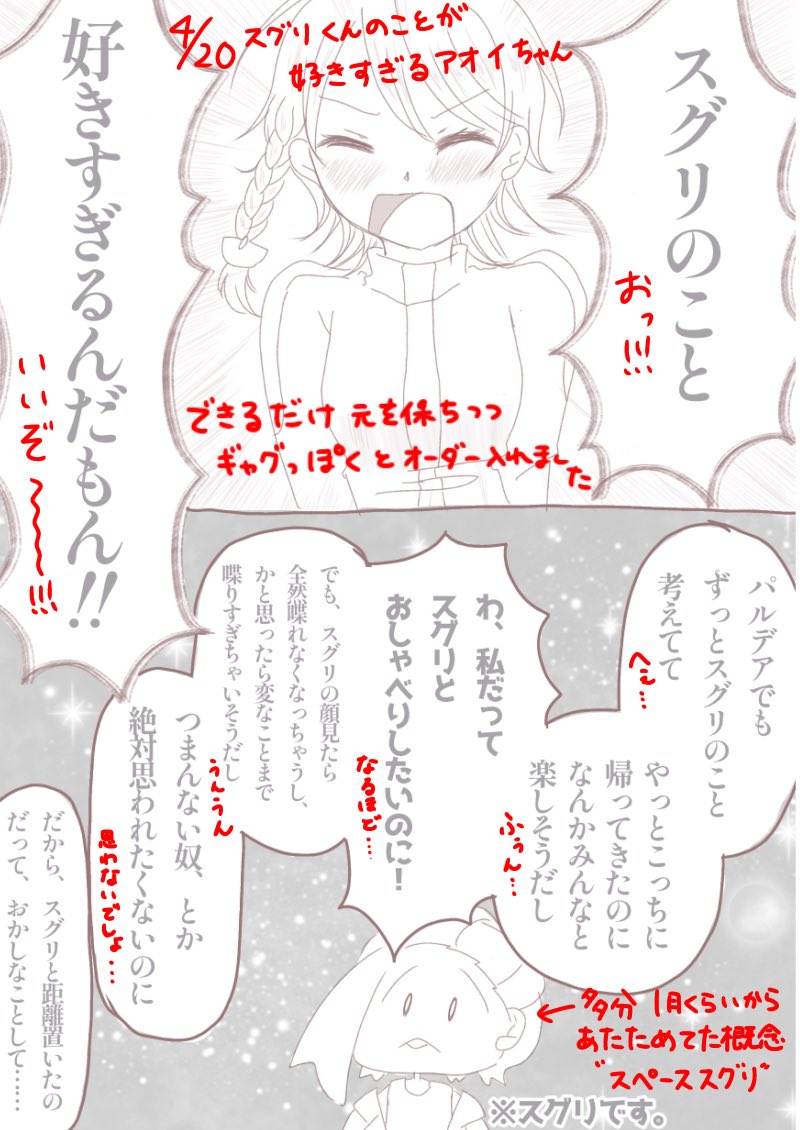 4/20 スグリくんのことが
好きすぎるアオイちゃん
スグリのこと
おっ!!!
好きすぎるんだもん!!
いいぞ〜〜〜!!!
できるだけ 元を保ちつつ
ギャグっぽくとオーダー入れました
パルデアでも
ずっとスグリのこと
考えてて
へぇ…
やっとこっちに
帰ってきたのに
なんかみんなと
楽しそうだし
ふぅん…
わ、私だって
スグリと
おしゃべりしたいのに!
なるほど…
でも、スグリの顔見たら
全然喋れなくなっちゃうし、
かと思ったら変なことまで
喋りすぎちゃいそうだし
うんうん
つまんない奴、とか
絶対思われたくないのに
思わないでしょ…
だから、スグリと距離置いたの
だって、おかしなことして……
←多分 1月くらいから
あたためてた概念
"スペーススグリ"
※スグリです。